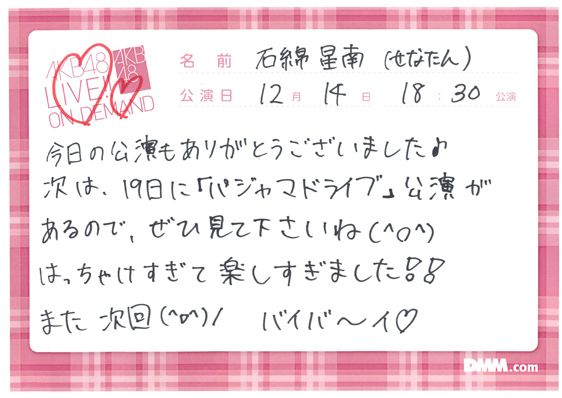 AKB48
LIVE!!
ON DEMAND
AKB
48
名 前 石綿 星南 (せなたん)
公演日 12月 14日 18:30公演
今日の公演もありがとうございました♪
次は、19日に「パジャマドライブ」公演が
あるので、ぜひ見て下さいね(^o^)
はっちゃけすぎて楽しすぎました!!
また次回(^o^)/ バイバ〜イ♡
DMM.com